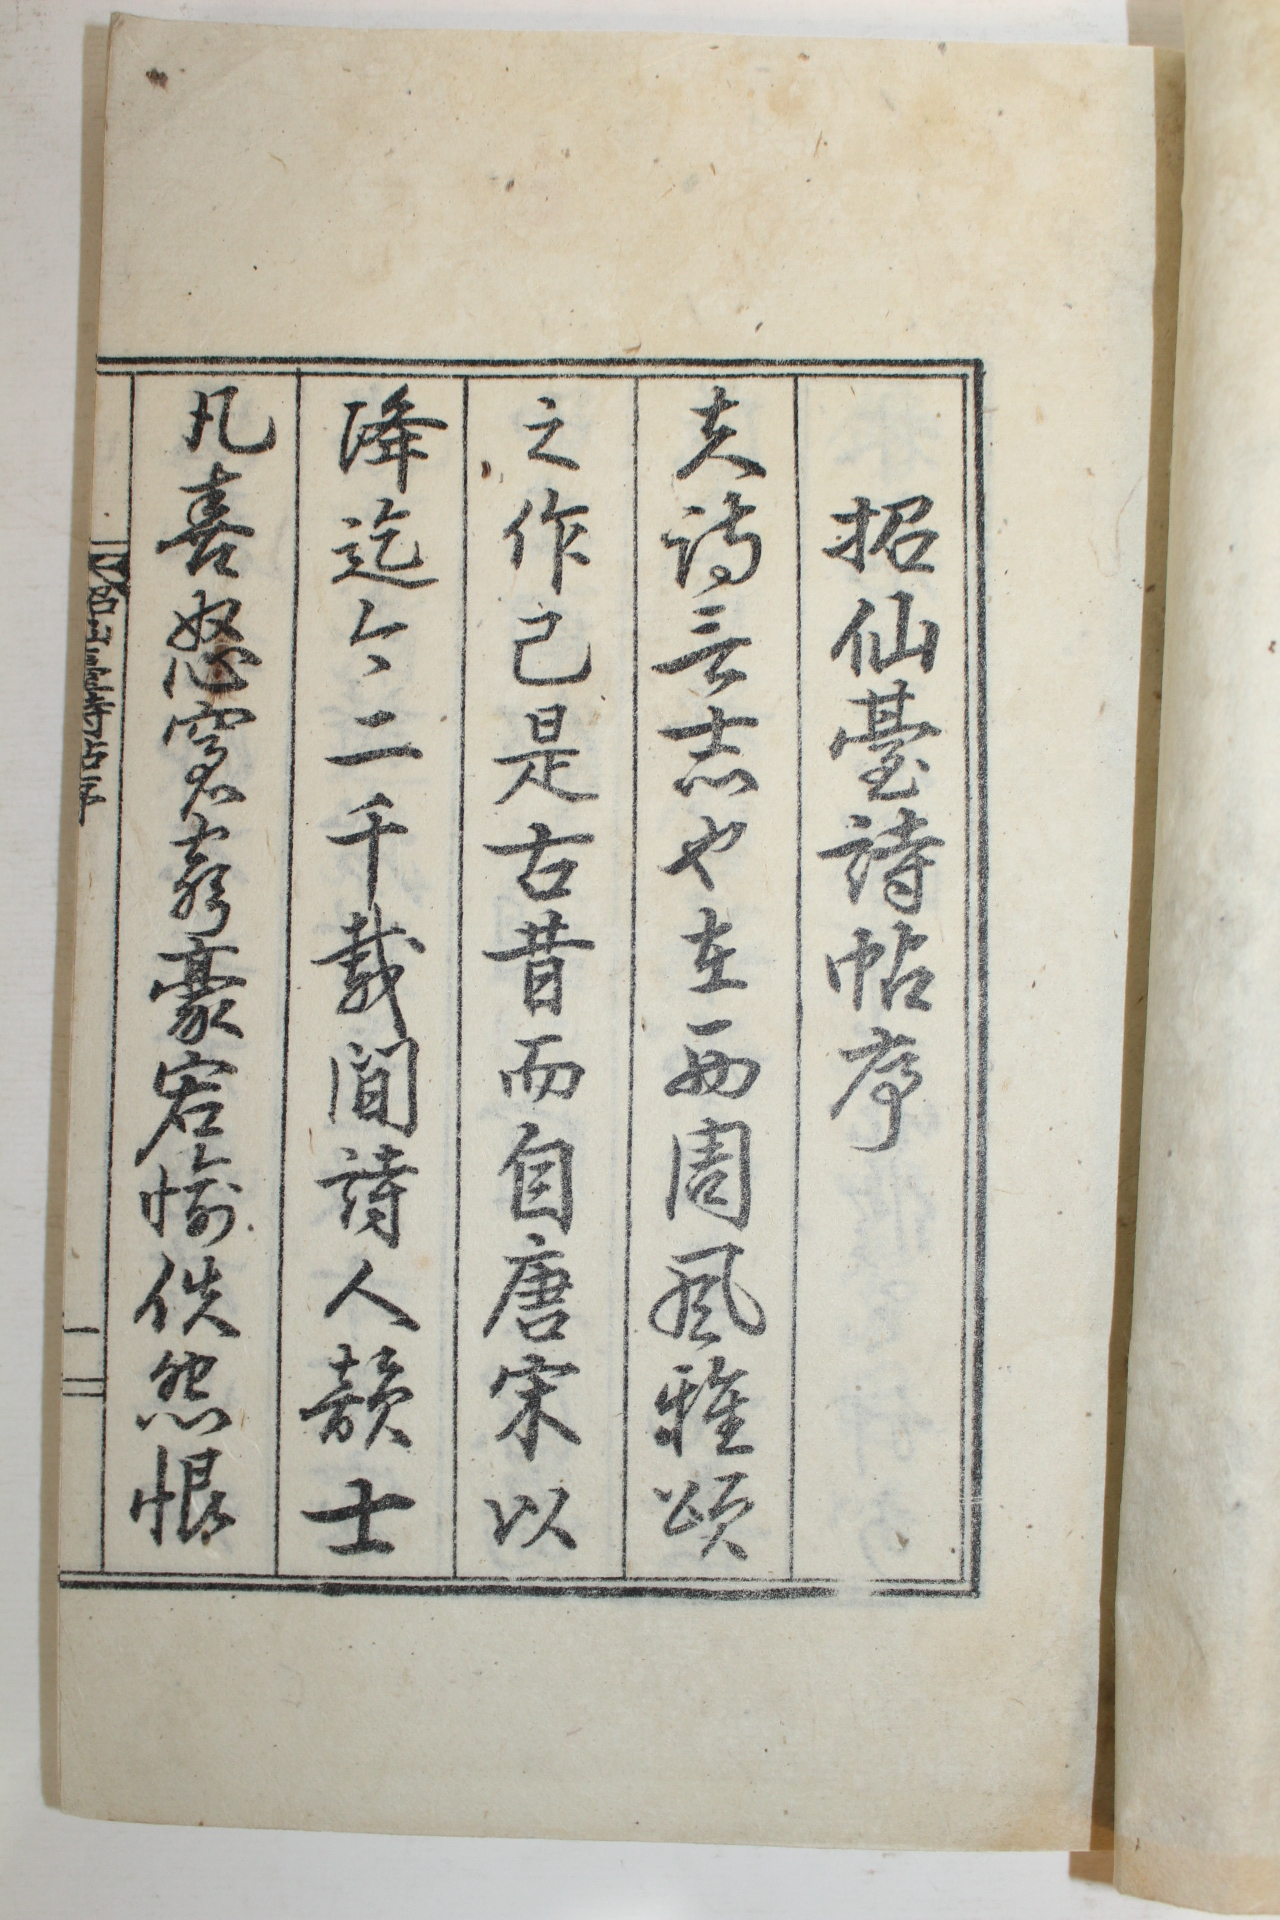 招仙臺詩帖序
夫詩言志也在西周風雅頌
之作已是古昔而自唐宋以
降迄今二千載間詩人韻士
凡喜怒窘窮豪宕愉佚怨恨
一